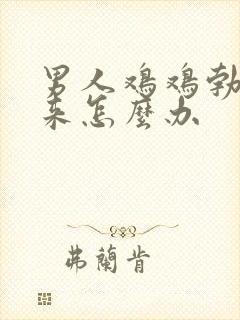 男人鸡鸡勃
来怎麼办
弗蘭肯